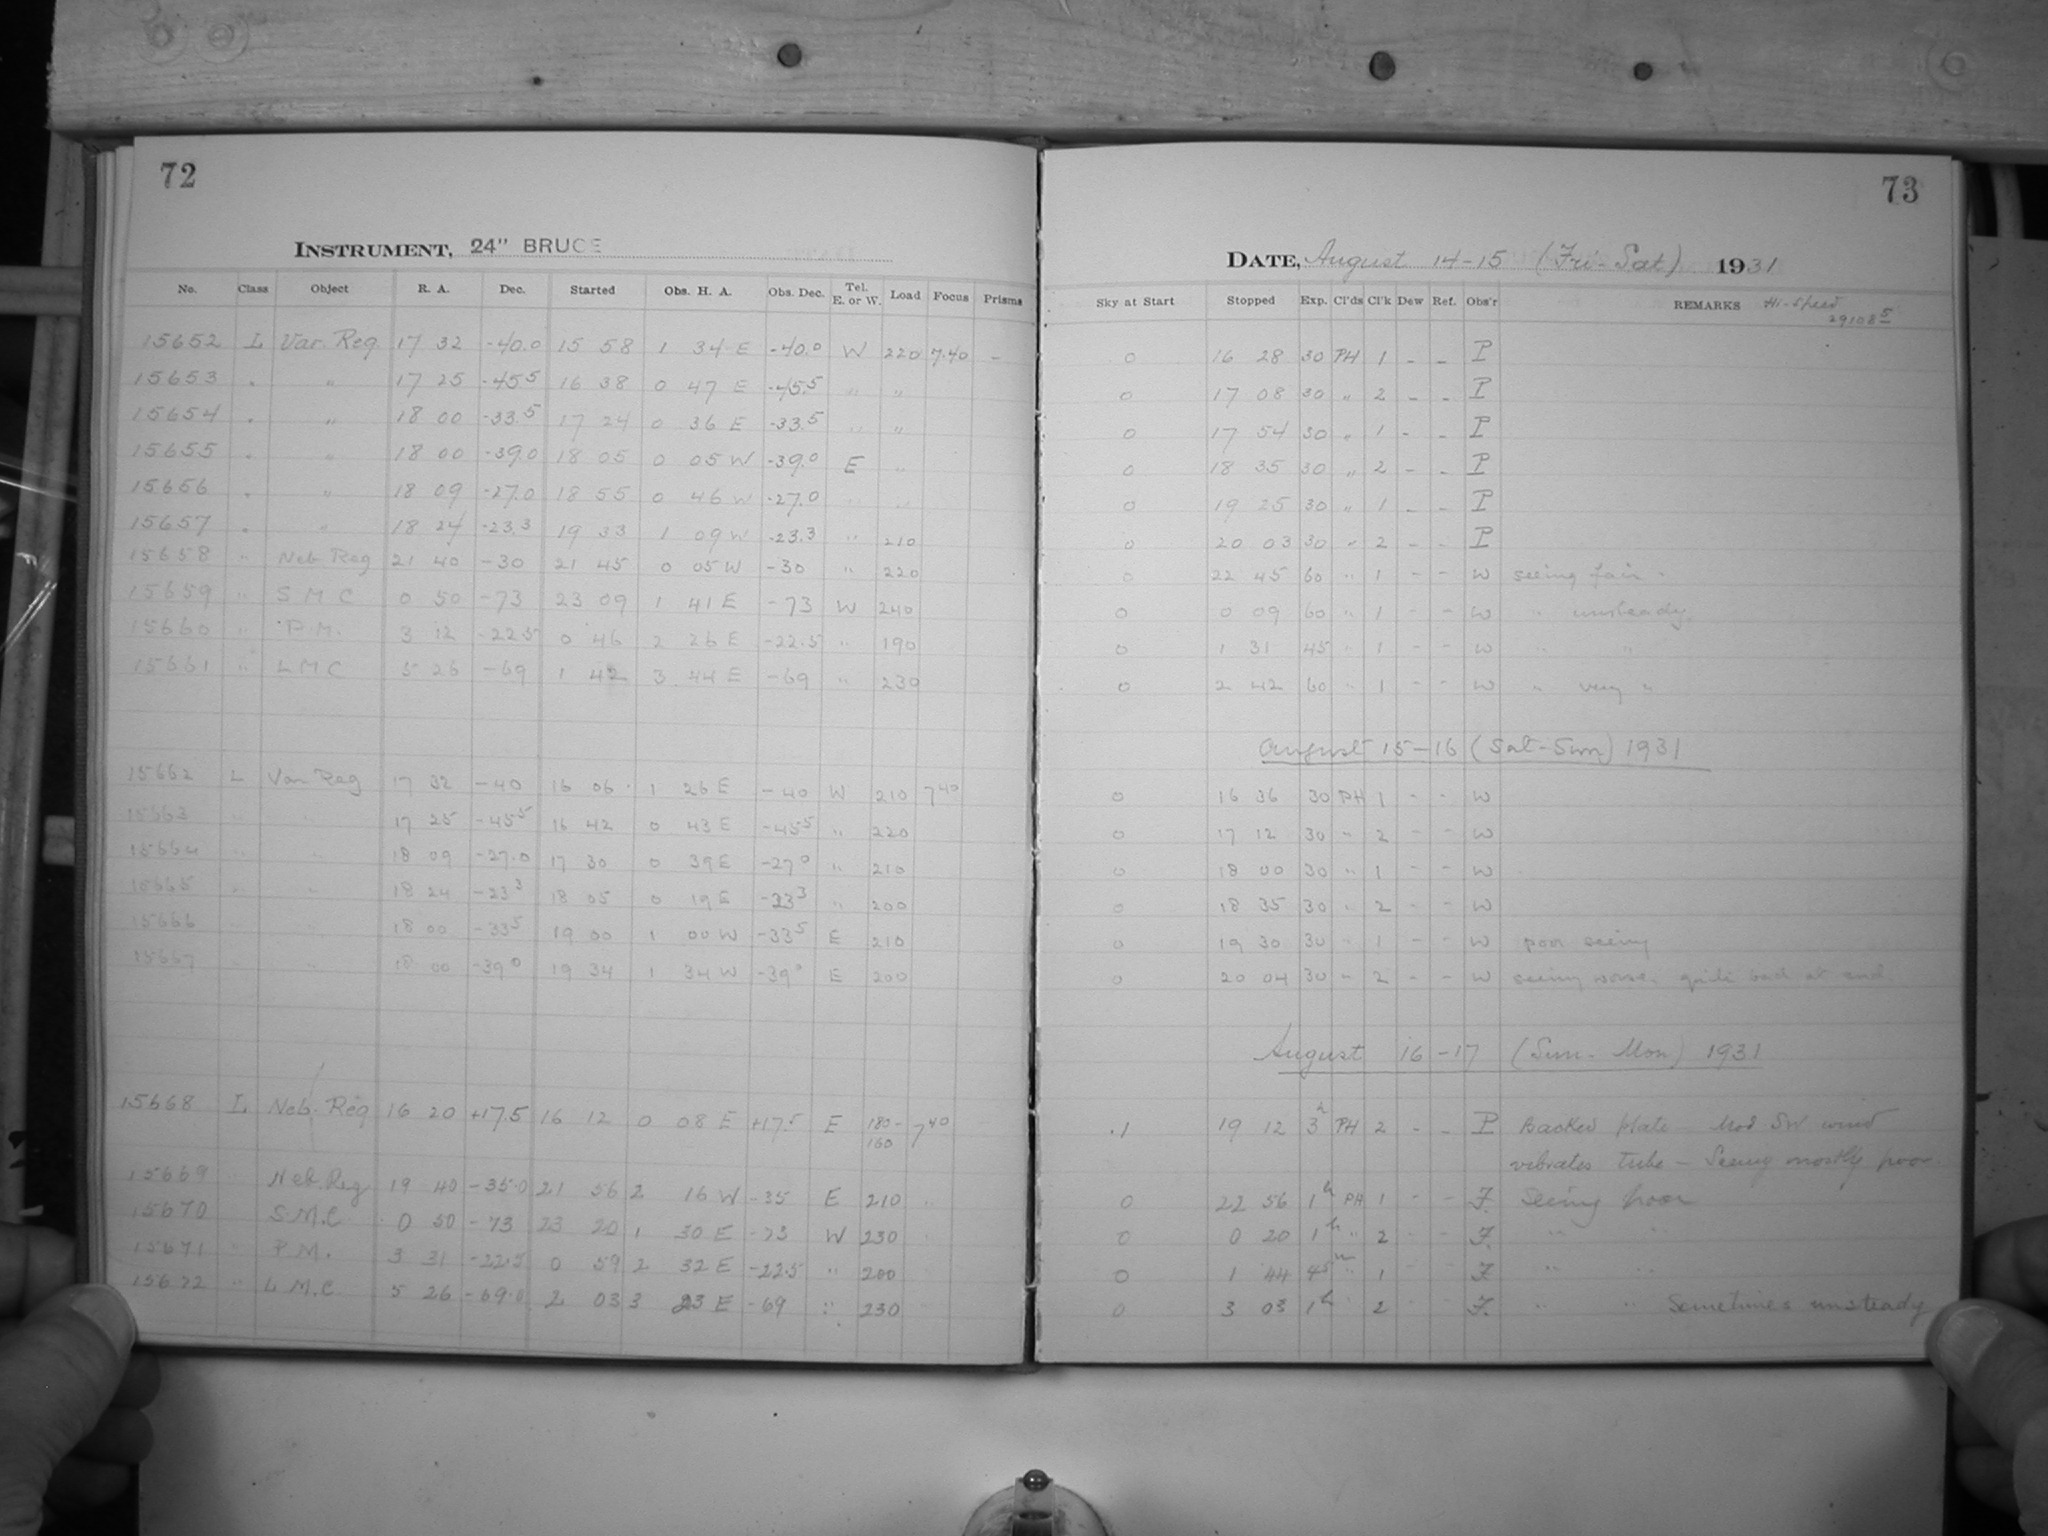 72
INSTRUMENT, 24" BRUCE
No. Class Object R. A. Dec. Started Obs. H. A. Obs. Dec. Tel. E. or W. Load Focus Prisms
15652 L Var. Reg. 17 32 -40.0 15 58 1 34 E -40.0 W 220 7.40 -
15653 " " 17 25 -45.5 16 38 0 47 E -45.5 " "
15654 " " 18 00 -33.5 17 24 0 36 E -33.5 " "
15655 " " 18 00 -39.0 18 05 0 05 W -39.0 E "
15656 " " 18 09 -27.0 18 55 0 46 W -27.0 " "
15657 " " 18 24 -23.3 19 33 1 09 W -23.3 " 210
15658 " Neb Reg 21 40 -30 21 45 0 05 W -30 " 220
15659 " S M C 0 50 -73 23 09 1 41 E -73 W 240
15660 " P.M. 3 12 -22.5 0 46 2 26 E -22.5 " 190
15661 " L M C 5 26 -69 1 42 3 44 E -69 " 230
15662 L Var Reg 17 32 -40 16 06 1 26 E -40 W 210 7 40
15663 " " 17 25 -45 5 16 42 0 43 E -45 5 " 220
15664 " " 18 09 -27.0 17 30 0 39 E -27 0 " 210
15665 " " 18 24 -23 3 18 05 0 19 E -23 3 " 200
15666 " " 18 00 -33 5 19 00 1 00 W -33 5 E 210
15667 " " 18 00 -39 0 19 34 1 34 W -39 0 E 200
15668 L Neb. Reg 16 20 +17.5 16 12 0 08 E +17.5 E 180-160 7 40
15669 " Neb. Reg 19 40 -35.0 21 56 2 16 W -35 E 210 "
15670 S.M.C. 0 50 -73 23 20 1 30 E -73 W 230
15671 " P.M. 3 31 -22.5 0 59 2 32 E -22.5 " 200
15672 " L.M.C. 5 26 -69.0 2 03 3 23 E -69 " 230
73
DATE, August 14-15 (Fri-Sat) 1931
Sky at Start Stopped Exp. Cl'ds Cl'k Dew Ref. Obs'r REMARKS Hi-Speed 29108 5
0 16 28 30 PH 1 - - P
0 17 08 30 " 2 - - P
0 17 54 30 " 1 - - P
0 18 35 30 " 2 - - P
0 19 25 30 " 1 - - P
0 20 03 30 " 2 - - P
0 22 45 60 " 1 - - W seeing fair.
0 0 09 60 " 1 - - W " unsteady
0 1 31 45 " 1 - - W " "
0 2 42 60 " 1 - - W " very "
August 15-16 (Sat-Sun) 1931
0 16 36 30 PH 1 - - W
0 17 12 30 " 2 - - W
0 18 00 30 " 1 - - W
0 18 35 30 " 2 - - W
0 19 30 30 " 1 - - W poor seeing
0 20 04 30 " 2 - - W seeing worse, quite bad at end.
August 16-17 (Sun-Mon) 1931
.1 19 12 3 h PH 2 - - P Backed plate Mod SW wind
vibrates tube - Seeing mostly poor.
0 22 56 1 h PH 1 - - F. Seeing poor
0 0 20 1 h " 2 - - F. " "
0 1 44 45 m " 1 F. " "
0 3 03 1 h " 2 F. " " Sometimes unsteady